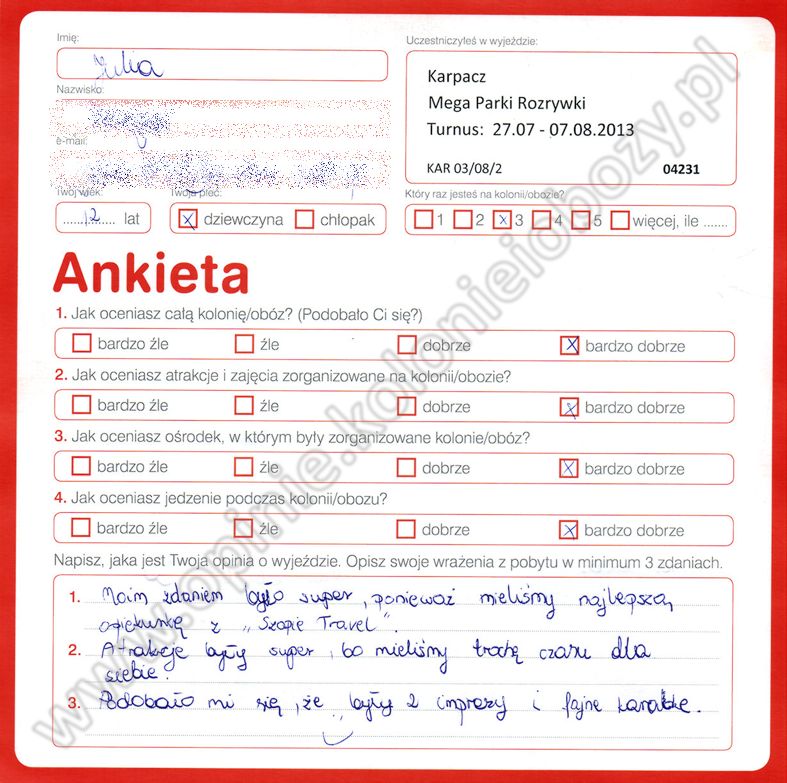 Imię:
Julia
Uczestniczyłeś w wyjeździe:
Karpacz
Mega Parki Rozrywki
Turnus: 27.07 - 07.08.2013
KAR 03/08/2 04231
Nazwisko:
e-mail:
Twój wiek: Twoja płeć: Który raz jesteś na kolonii/obozie?
12 lat x dziewczyna chłopak 1 2 x 3 4 5 więcej, ile .......
Ankieta
1. Jak oceniasz całą kolonię/obóz? (Podobało Ci się?)
bardzo źle źle dobrze x bardzo dobrze
2. Jak oceniasz atrakcje i zajęcia zorganizowane na kolonii/obozie?
bardzo źle źle dobrze x bardzo dobrze
3. Jak oceniasz ośrodek, w którym były zorganizowane kolonie/obóz?
bardzo źle źle dobrze x bardzo dobrze
4. Jak oceniasz jedzenie podczas kolonii/obozu?
bardzo źle źle dobrze x bardzo dobrze
Napisz, jaka jest Twoja opinia o wyjeździe. Opisz swoje wrażenia z pobytu w minimum 3 zdaniach.
1. Moim zdaniem było super, ponieważ mieliśmy najlepszą
opiekunkę z "Szopie Travel".
2. Atrakcje były super, bo mieliśmy trochę czasu dla
siebie.
3. Podobało mi się, że były 2 imprezy i fajne
www.opinie.kolonieiobozy.pl